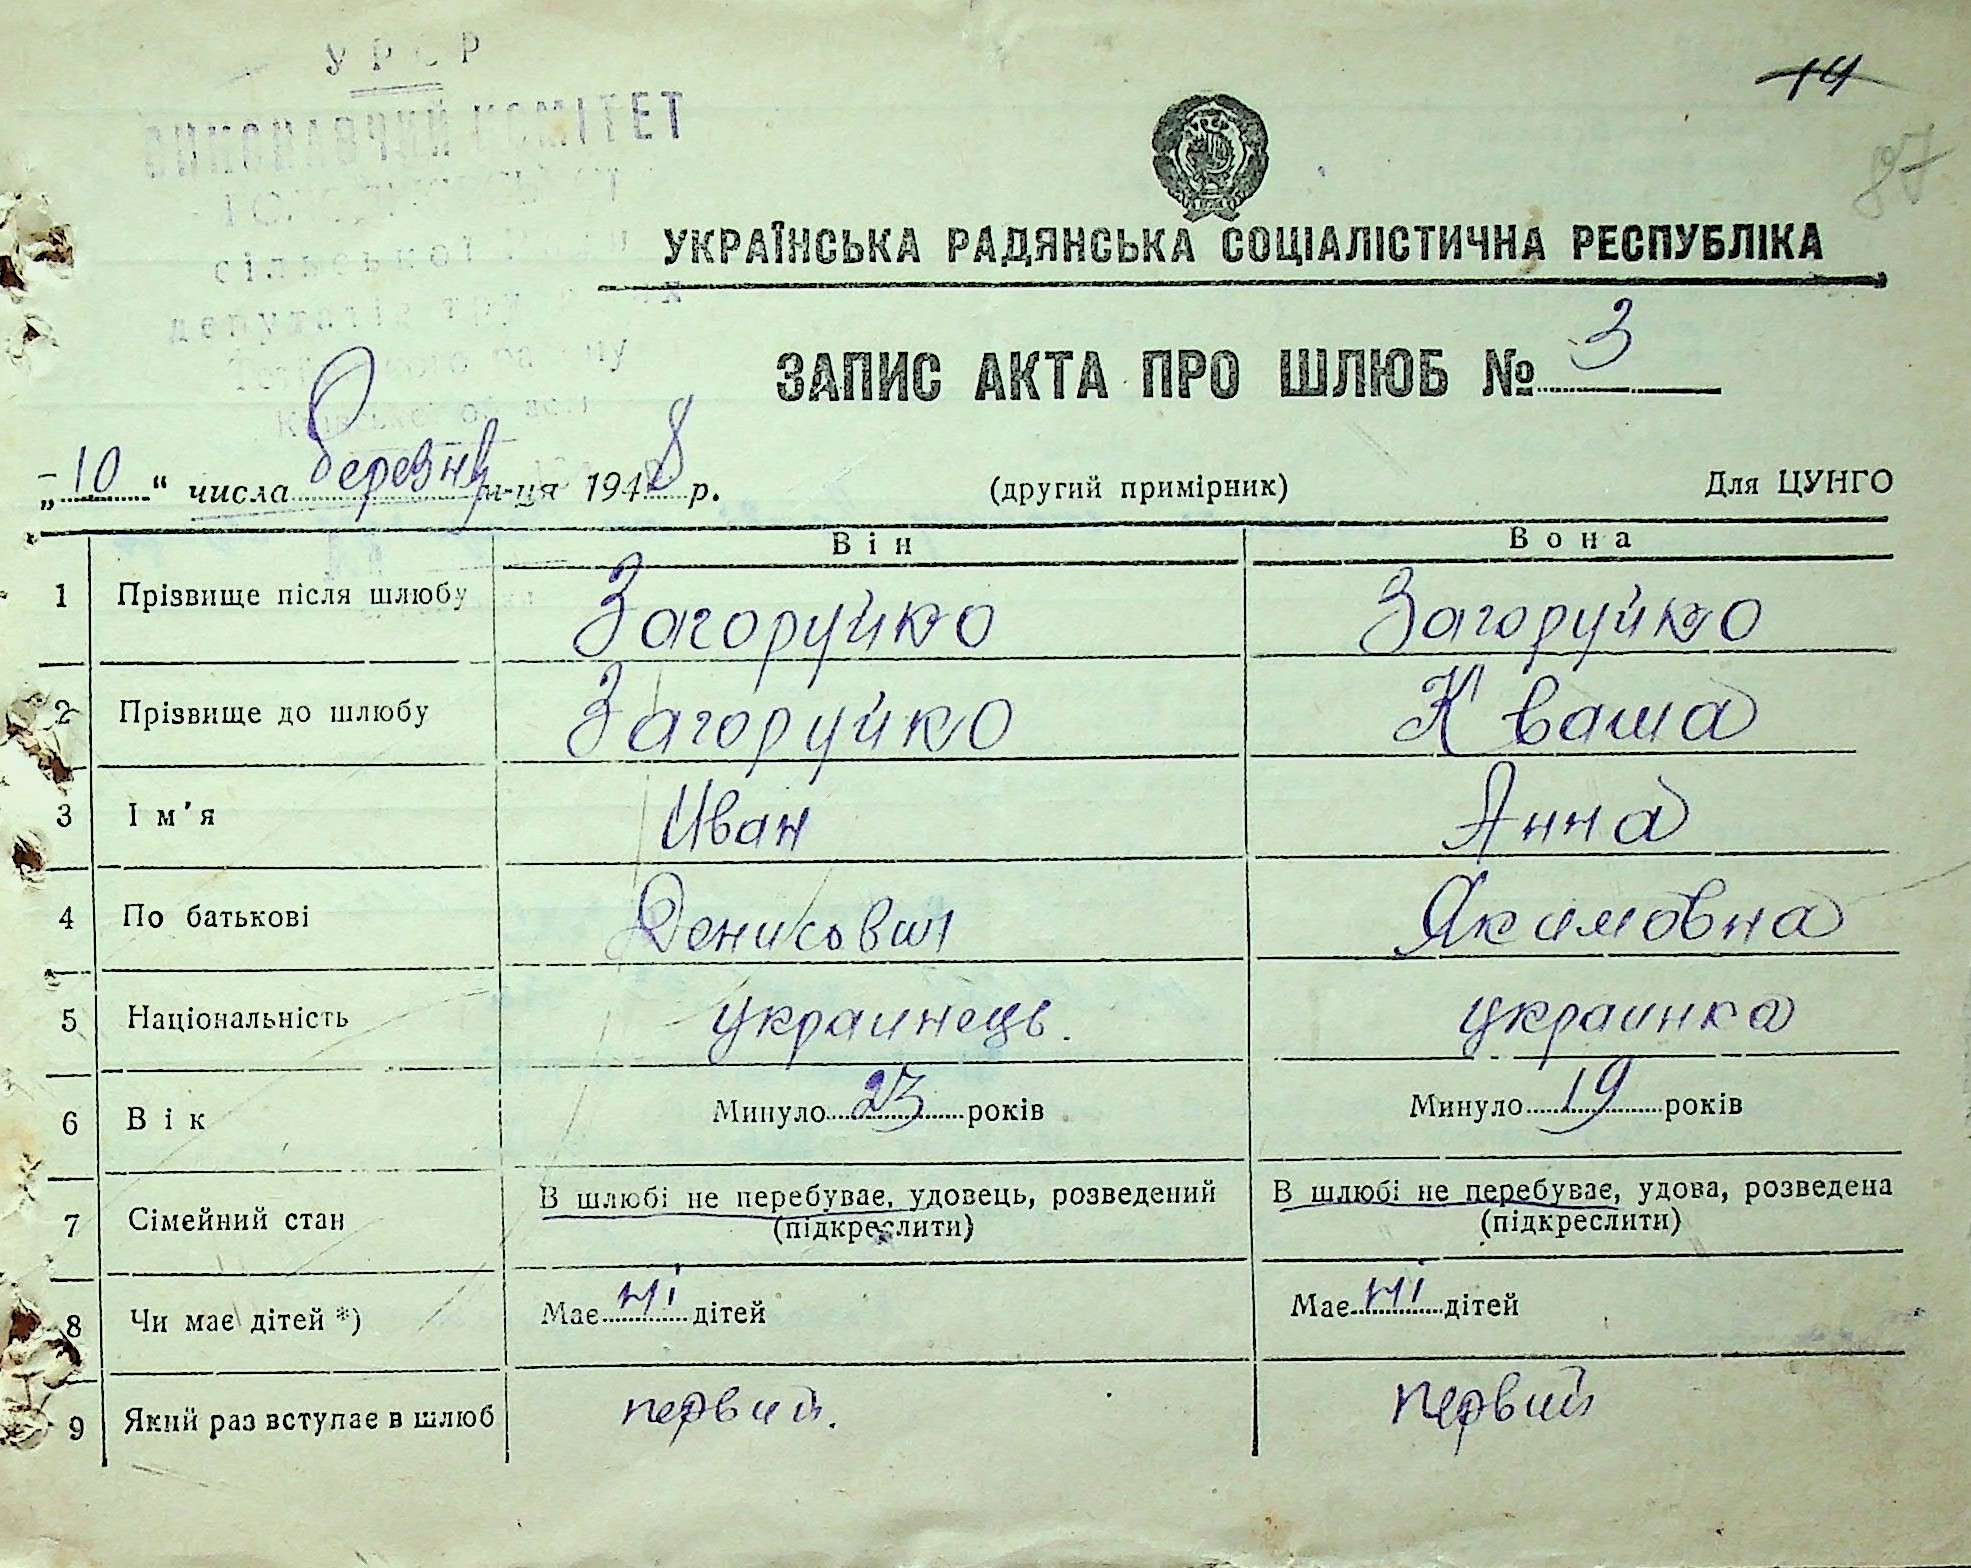 УРСР
ВИКОНАВЧИЙ КОМІТЕТ
сільської Ради
депутатів
району
Київської області
14
87
УКРАЇНСЬКА РАДЯНСЬКА СОЦІАЛІСТИЧНА РЕСПУБЛІКА
ЗАПИС АКТА ПРО ШЛЮБ № 3
„10“ числа Березня м-ця 1948 р. (другий примірник) Для ЦУНГО
Він Вона
1 Прізвище після шлюбу Загоруйко Загоруйко
2 Прізвище до шлюбу Загоруйко Кваша
3 Ім'я Иван Анна
4 По батькові Денисович Якимовна
5 Національність украинець. украинка
6 Вік Минуло 23 років Минуло 19 років
7 Сімейний стан В шлюбі не перебуває, удовець, розведений В шлюбі не перебуває, удова, розведена
(підкреслити) (підкреслити)
8 Чи має дітей *) Має ні дітей Має ні дітей
9 Який раз вступає в шлюб первий. первий